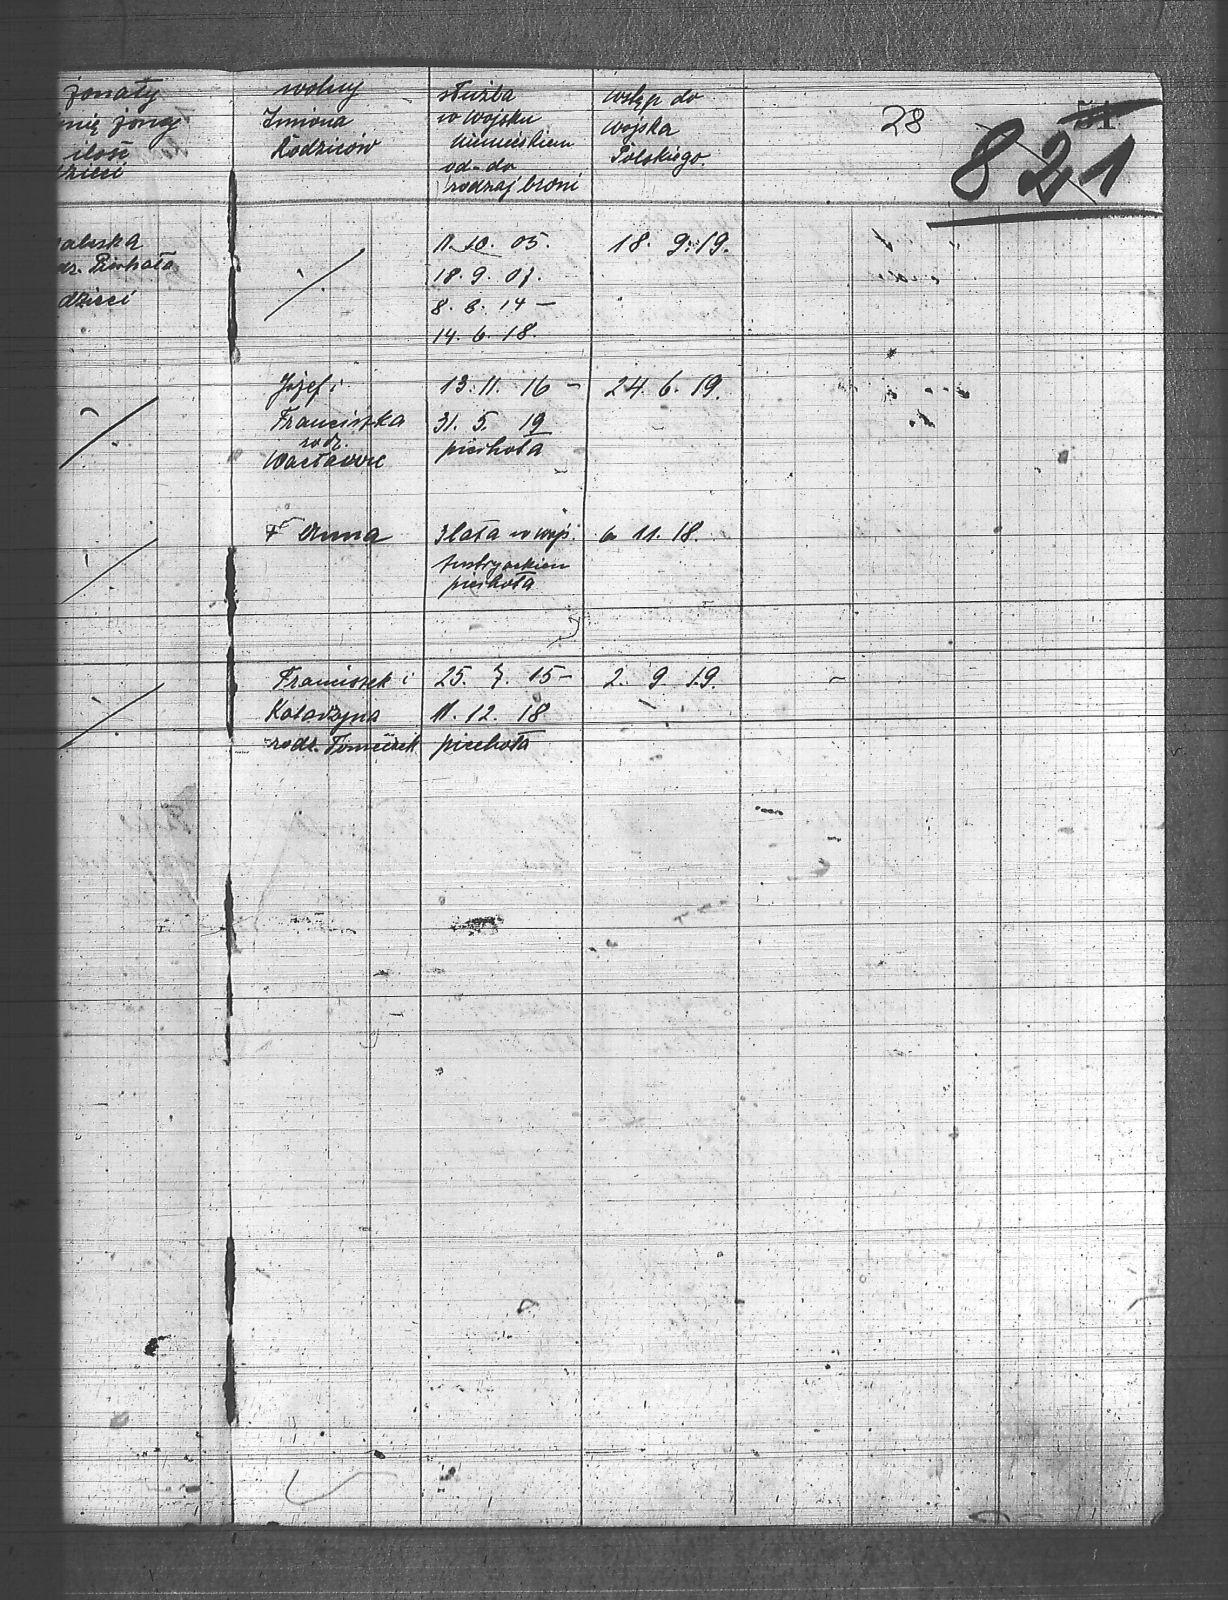 żonaty
imię żony
ilość
dzieci
wolny
Imiona
Rodziców
służba
w wojsku
niemieckiem
od-do
rodzaj broni
wstęp do
Wojska
Polskiego
28
51
821
dz. Piechota
dzieci
11. 10. 05.
18. 9. 07.
8. 8. 14 -
14. 6. 18.
18. 9. 19.
Józef i
Franciszka
rodz.
13. 11. 16 -
31. 5. 19
piechota
24. 6. 19.
Anna
3 lata w wojs.
austryackiem
piechota
11. 18.
Franciszek i
Katarzyna
rodz. Tomeczek
25. 7. 15 -
11. 12. 18
piechota
2. 9. 19.